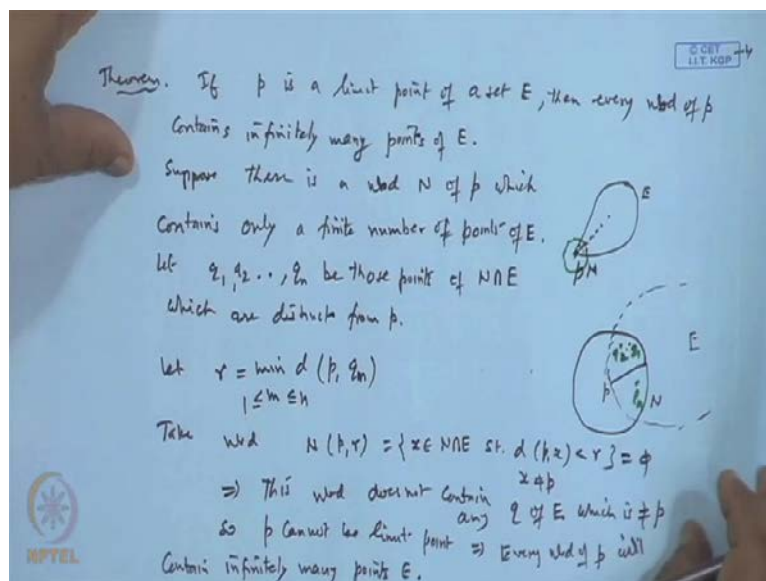 © CET
I.I.T. KGP
Theorem. If p is a limit point of a set E, then every nbd of p
Contains infinitely many points of E.
Suppose there is a nbd N of p which
Contains only a finite number of points of E.
Let q₁, q₂ .., qₙ be those points of N∩E
which are distinct from p.
Let r = min d (p, qₘ)
1≤m≤n
Take nbd N(p,r) = {x∈ N∩E st. d(p,x) < r} = φ
x≠p
⇒ This nbd does not contain any q of E which is ≠p
So p Cannot be limit point ⇒ Every nbd of p will
Contain infinitely many points E.
E
p N
E
p
N
NPTEL